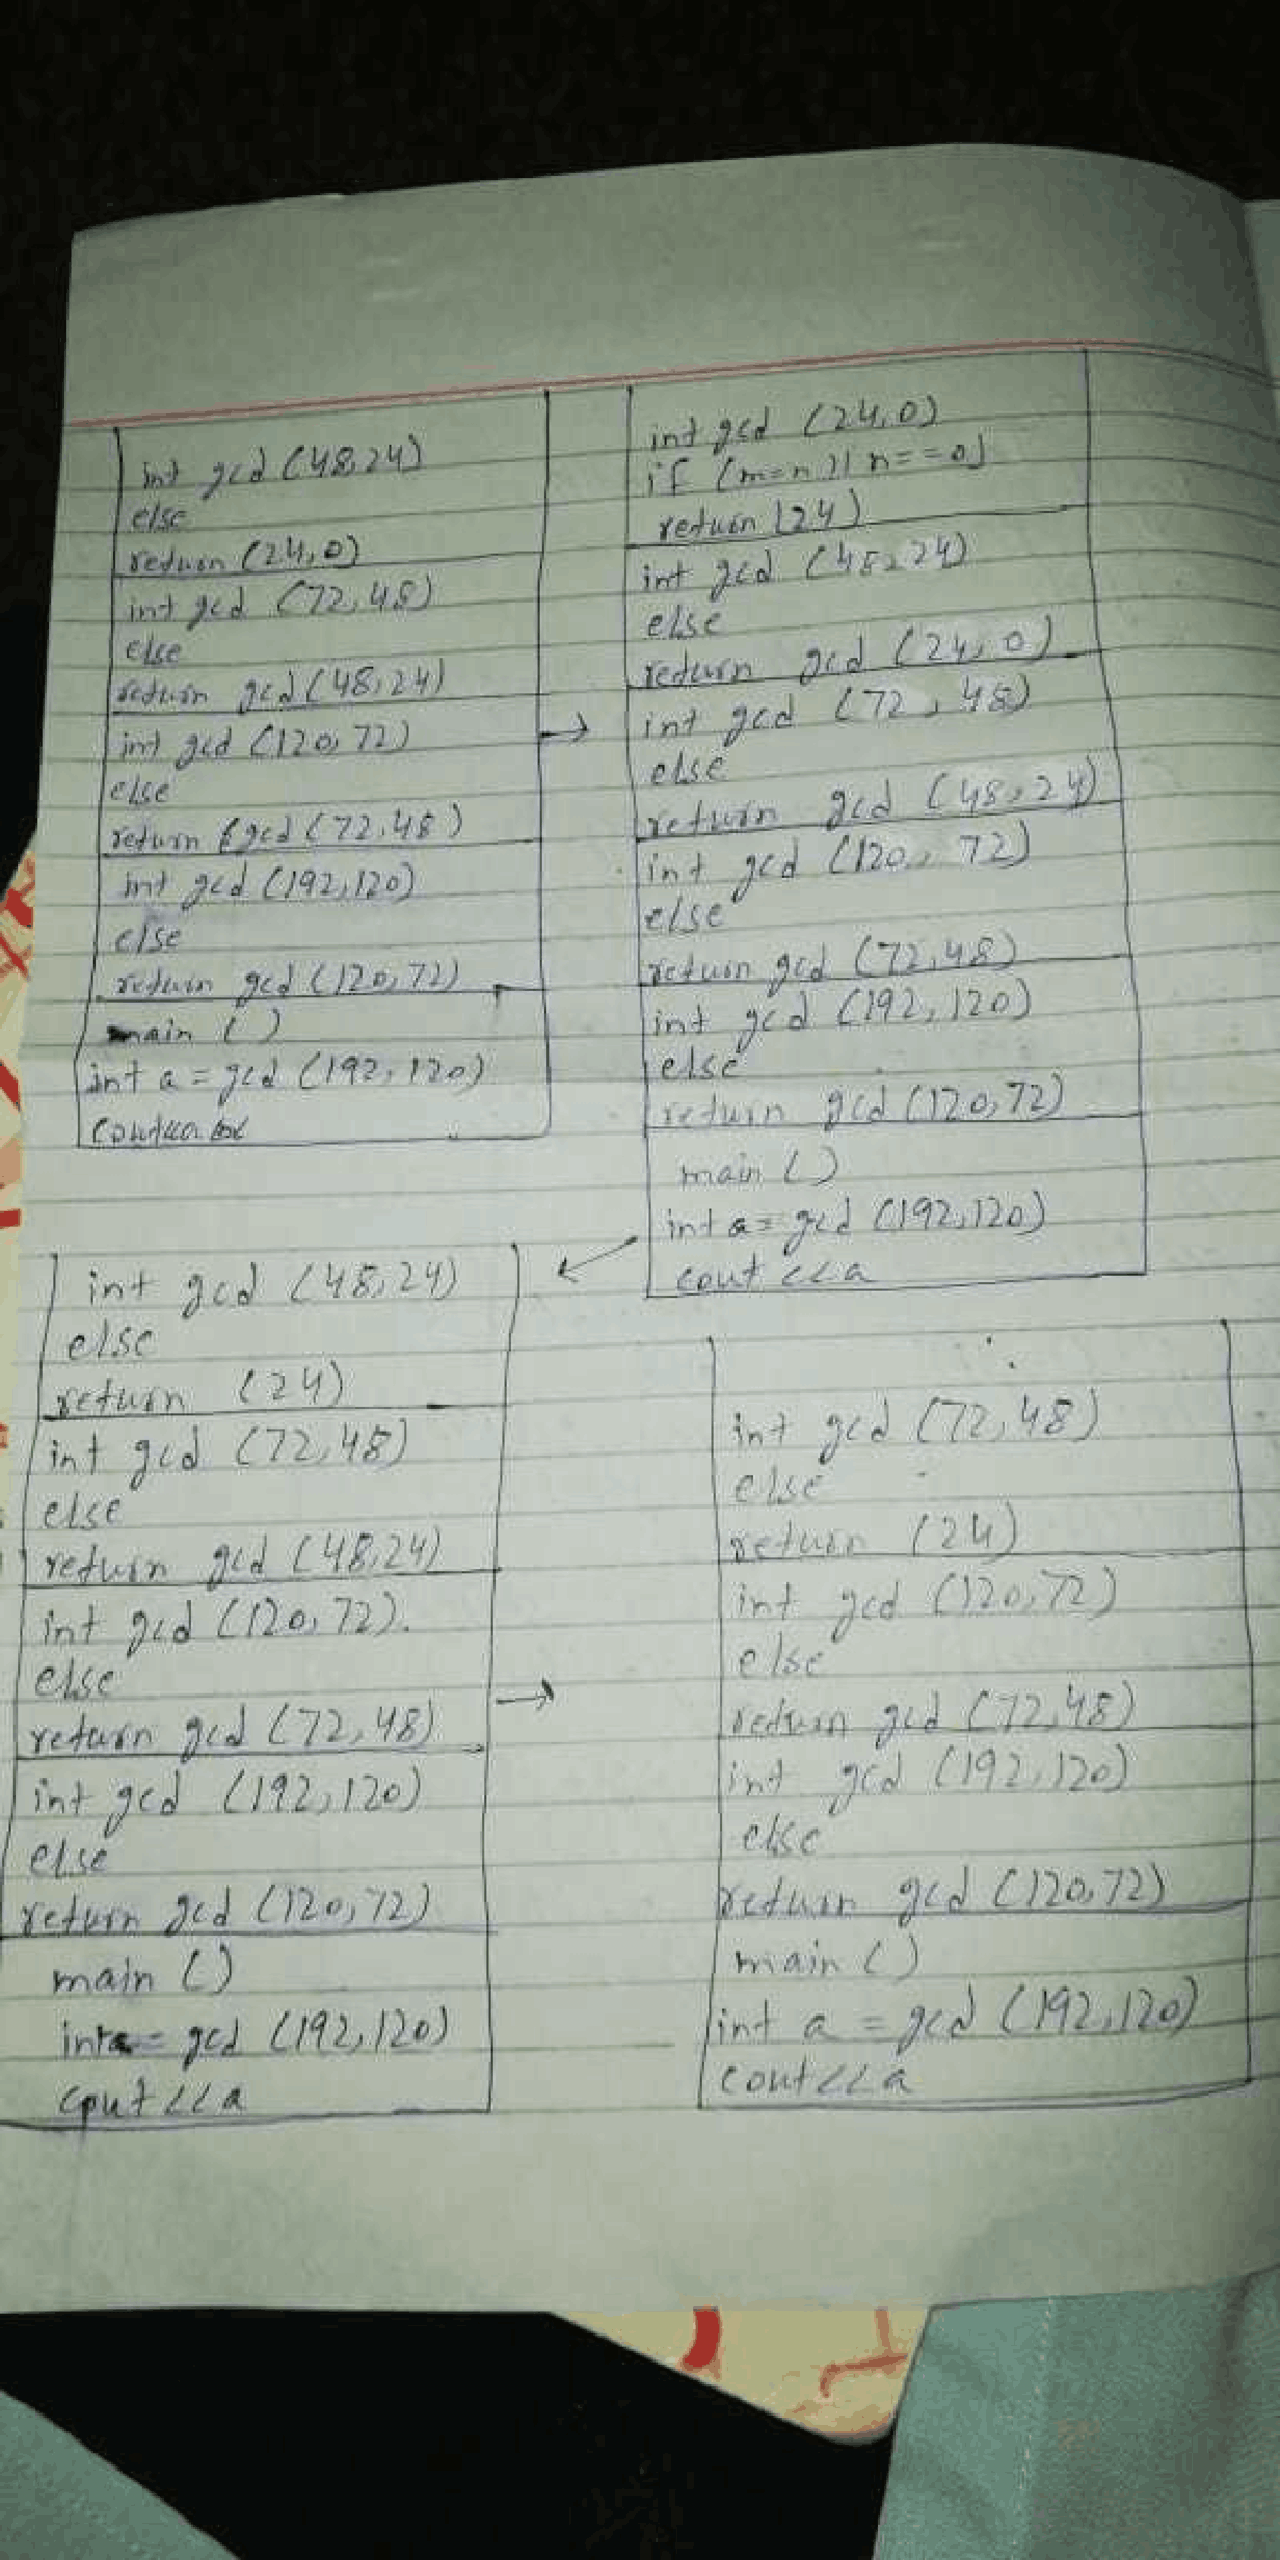 int gcd (48,24)
else
return (24,0)
int gcd (72,48)
else
return gcd (48,24)
int gcd (120,72)
else
return gcd (72,48)
int gcd (192,120)
else
return gcd (120,72)
main ()
int a = gcd (192,120)
int gcd (24,0)
if (m=n || n==0)
return (24)
int gcd (48,24)
else
return gcd (24,0)
int gcd (72,48)
else
return gcd (48,24)
int gcd (120,72)
else
return gcd (72,48)
int gcd (192,120)
else
return gcd (120,72)
main ()
int a = gcd (192,120)
cout <<a
int gcd (48,24)
else
return (24)
int gcd (72,48)
else
return gcd (48,24)
int gcd (120,72).
else
return gcd (72,48)
int gcd (192,120)
else
return gcd (120,72)
main ()
int a = gcd (192,120)
cout <<a
int gcd (72,48)
else
return (24)
int gcd (120,72)
else
return gcd (72,48)
int gcd (192,120)
else
return gcd (120,72)
main ()
int a = gcd (192,120)
cout <<a